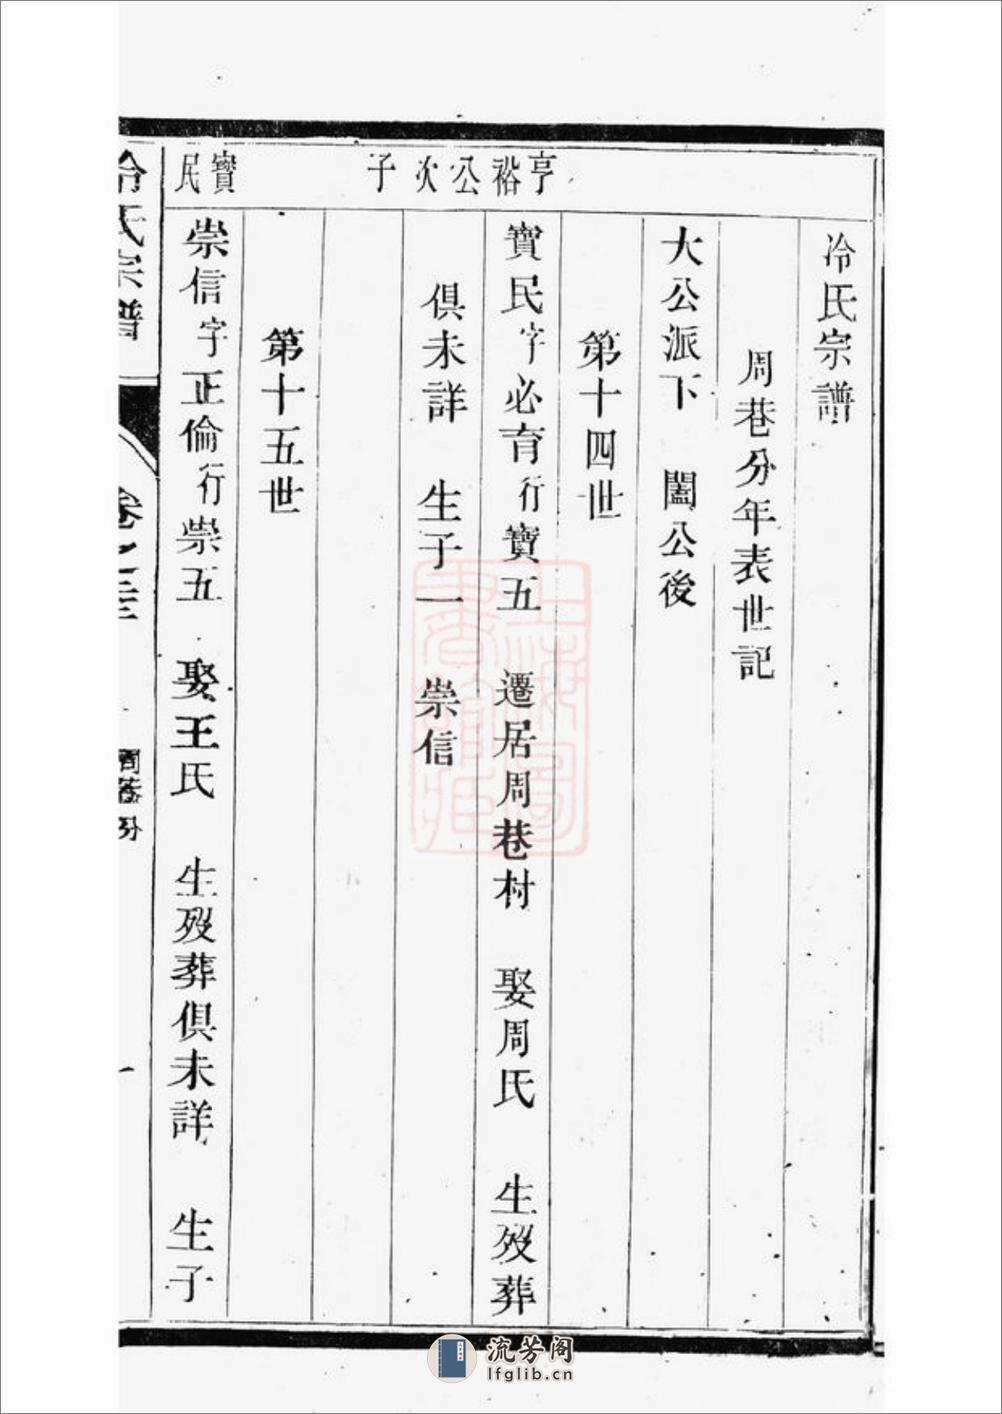 冷氏宗譜
周巷分年表世記
大公派下　闔公後
第十四世
亨裕公次子
寶民字必育行寶五　遷居周巷村　娶周氏　生歿葬
俱未詳　生子一　崇信
第十五世
寶民
崇信字正倫行崇五　娶王氏　生歿葬俱未詳　生子
冷氏宗譜
卷之三
周巷分
一
上海圖書館藏
流芳阁
lfglib.cn